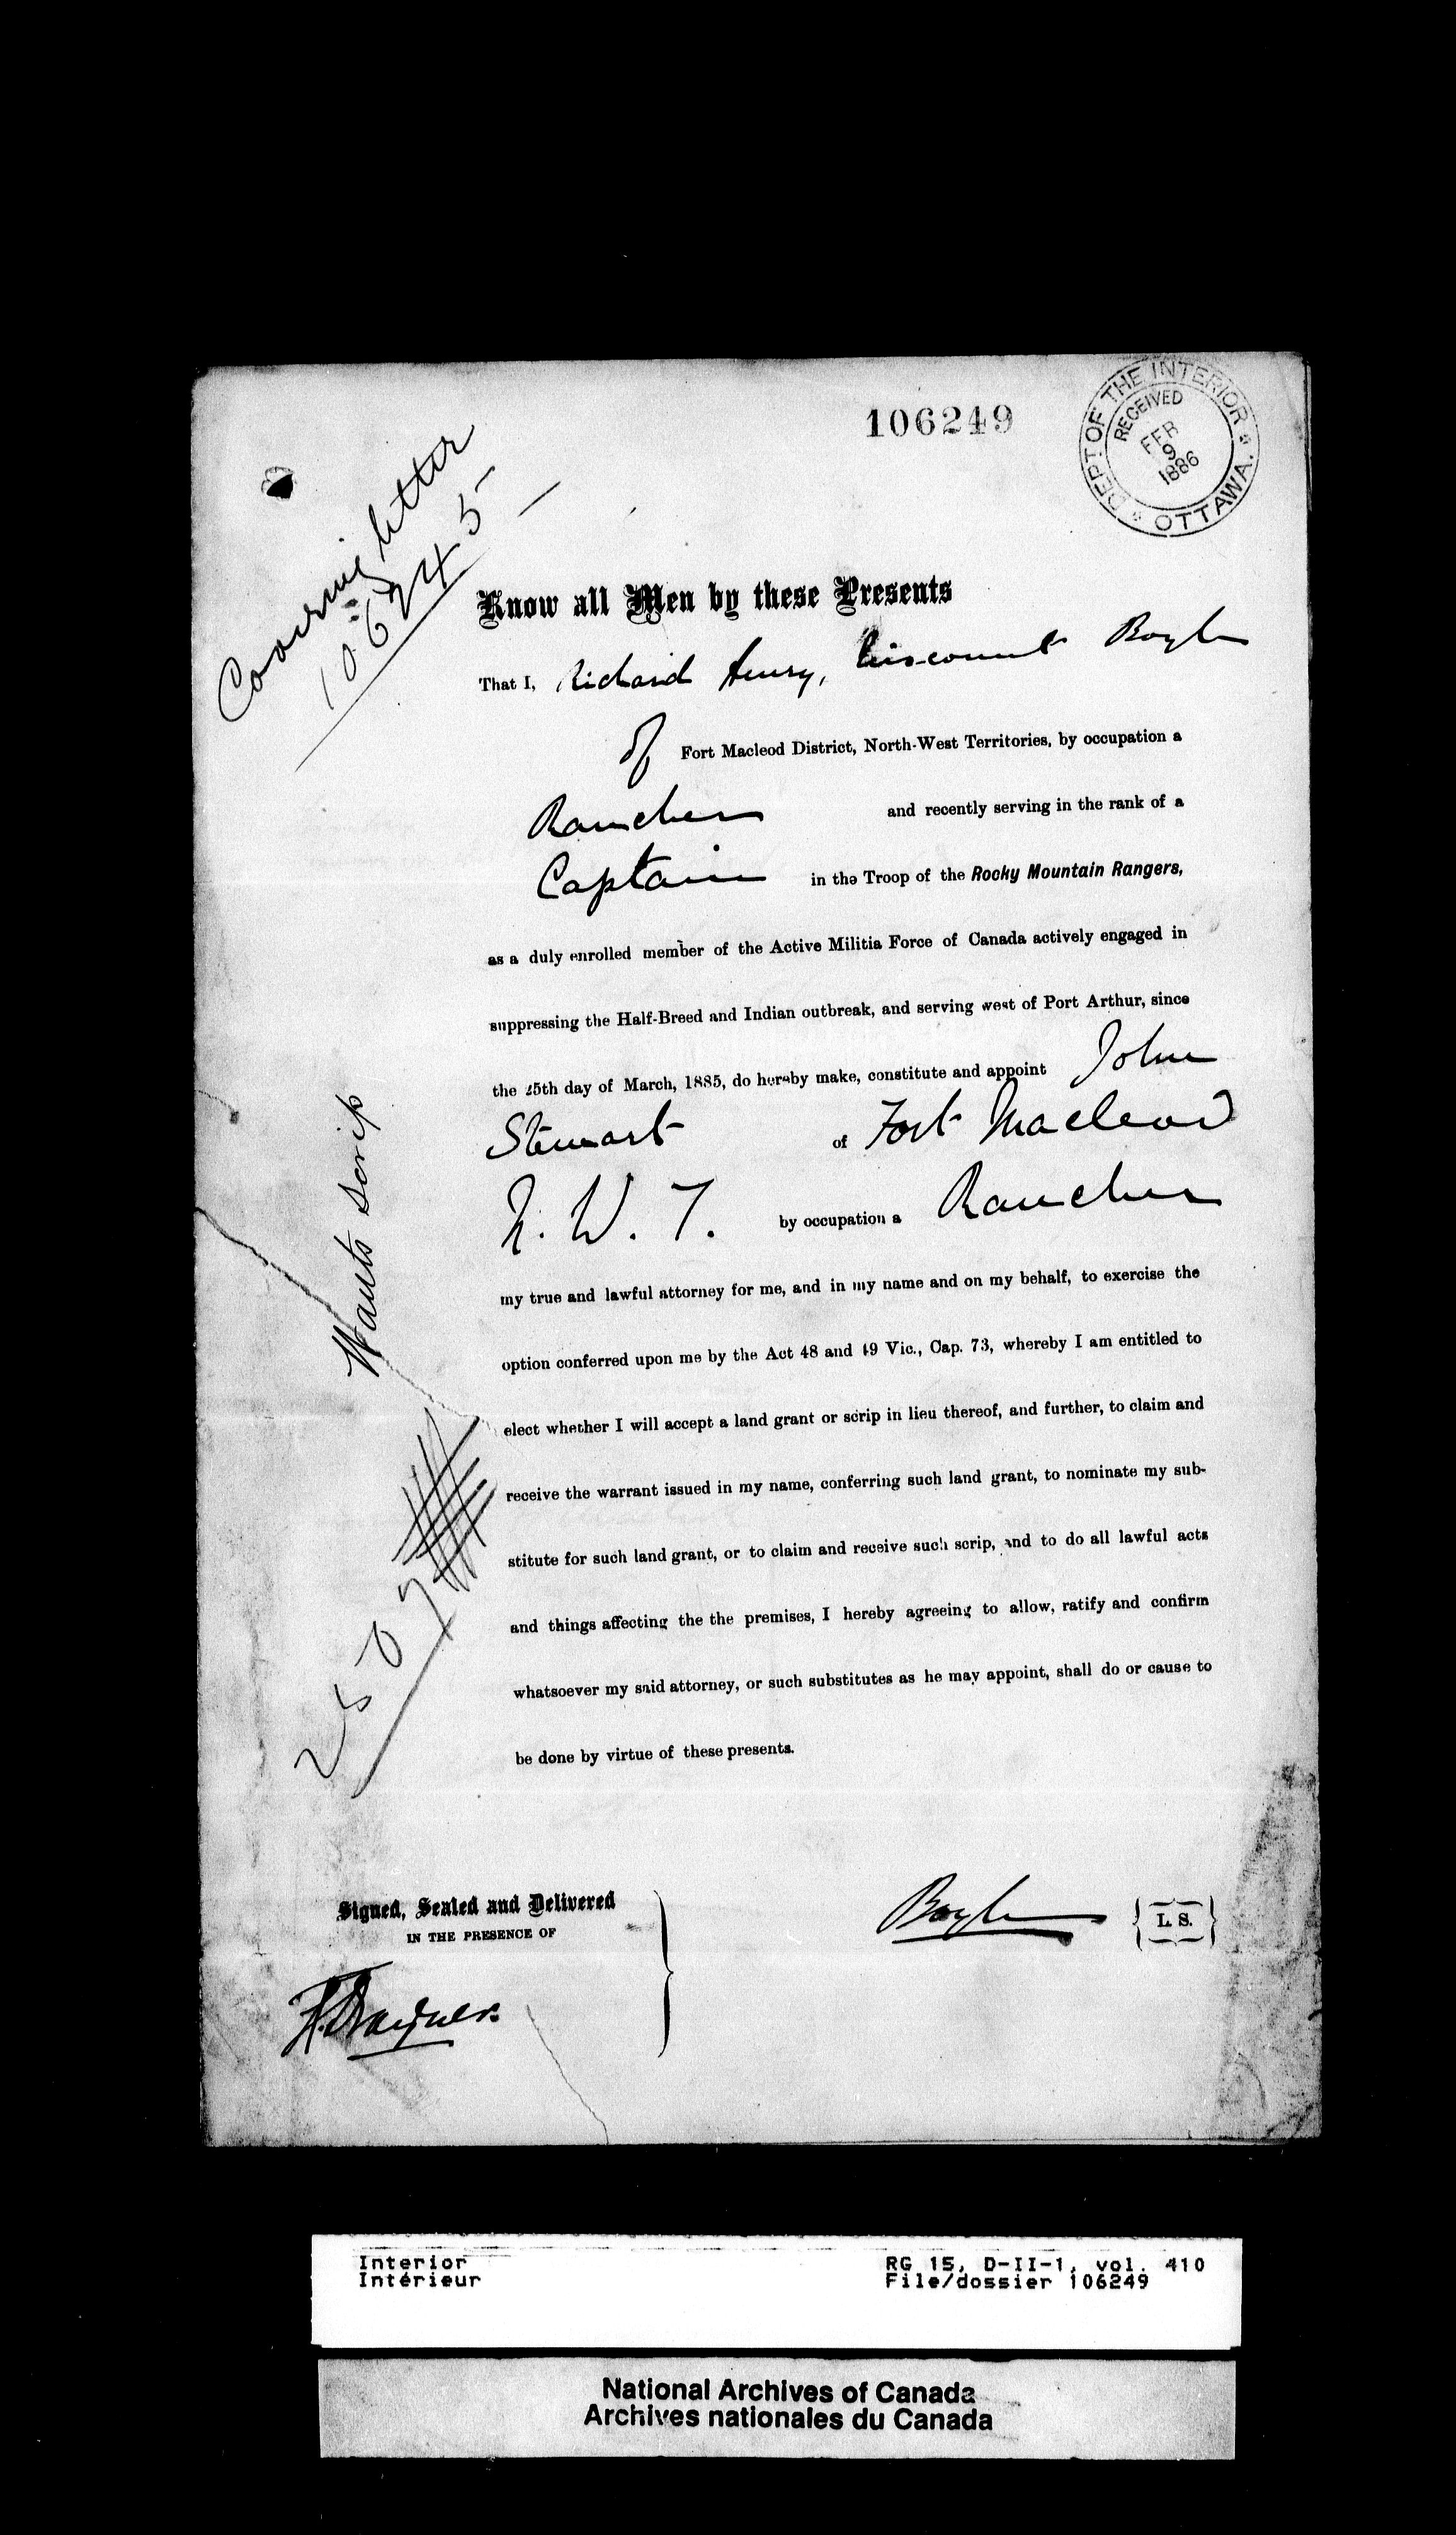 106249
DEPT OF THE INTERIOR
RECEIVED
FEB
9
1886
OTTAWA.
Covering letter
106245
Know all Men by these Presents
That I, Richard Henry, Viscount Boyle
of Fort Macleod District, North-West Territories, by occupation a
Rancher and recently serving in the rank of a
Captain in the Troop of the Rocky Mountain Rangers,
as a duly enrolled member of the Active Militia Force of Canada actively engaged in
suppressing the Half-Breed and Indian outbreak, and serving west of Port Arthur, since
the 25th day of March, 1885, do hereby make, constitute and appoint John
Stewart of Fort Macleod
N. W. T. by occupation a Rancher
my true and lawful attorney for me, and in my name and on my behalf, to exercise the
option conferred upon me by the Act 48 and 49 Vic., Cap. 73, whereby I am entitled to
elect whether I will accept a land grant or scrip in lieu thereof, and further, to claim and
receive the warrant issued in my name, conferring such land grant, to nominate my sub-
stitute for such land grant, or to claim and receive such scrip, and to do all lawful acts
and things affecting the the premises, I hereby agreeing to allow, ratify and confirm
whatsoever my said attorney, or such substitutes as he may appoint, shall do or cause to
be done by virtue of these presents.
Wants scrip
Signed, Sealed and Delivered
IN THE PRESENCE OF
Boyle
L. S.
Interior
Intérieur
RG 15, D-II-1, vol. 410
File/dossier 106249
National Archives of Canada
Archives nationales du Canada